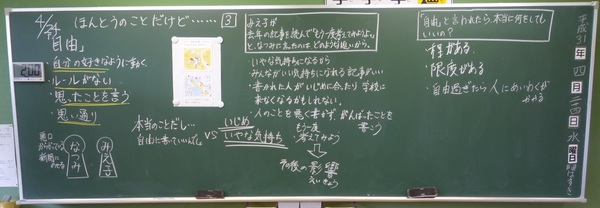 4/24
ほんとうのことだけど…… 3
「自由」
・自分の好きなように動く
・ルールがない
・思ったことを言う
・思い通り
悪口
新聞
なつみ
みえ子
本当のことだし…
自由に書いていいんでしょ
VS
いじめ
いやな気持ち
みえ子が
去年の記事を読んで「もう一度考えてみよう」
となつみに言ったのはどのような思いから。
・いやな気持ちになるから
・みんながいい気持ちになれる記事がいい
・書かれた人がいじめにあったり 学校に
来なくなるかもしれない。
・人のことを悪く書かず、がんばったことを
書こう
もう一度
考えてみよう
その後の影響
えいきょう
「自由」と言われたら、本当に何をしても
いいの?
・程がある。
・限度がある
・自由過ぎたら 人にめいわくが
かかる
平成31年四月二四日水曜日